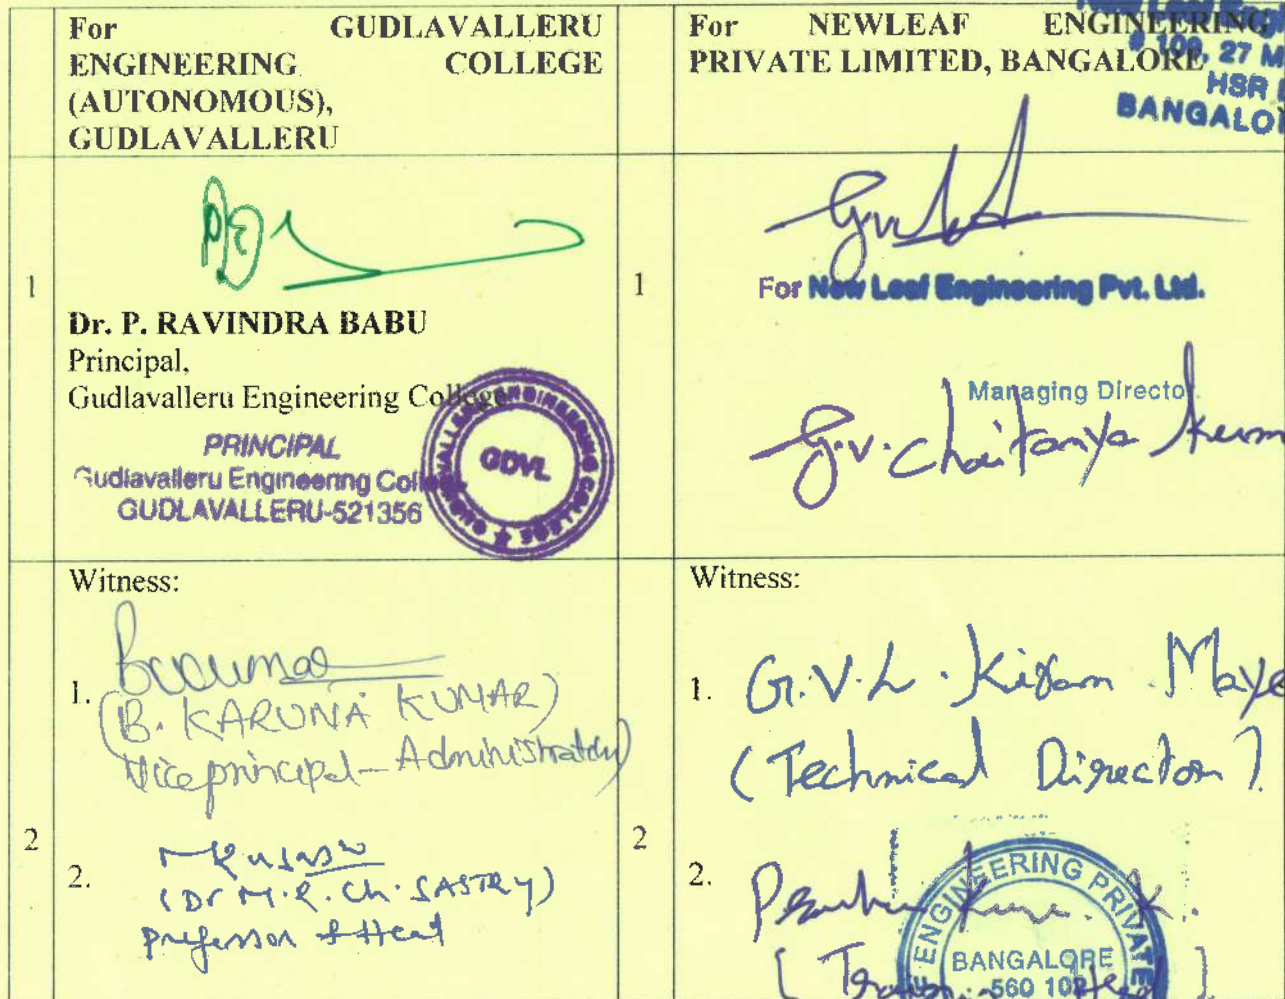 For GUDLAVALLERU
ENGINEERING COLLEGE
(AUTONOMOUS),
GUDLAVALLERU
For NEWLEAF ENGINEERING
PRIVATE LIMITED, BANGALORE
New Leaf Engi
# 109, 27 M
HSR
BANGALO
1
Dr. P. RAVINDRA BABU
Principal,
Gudlavalleru Engineering College
PRINCIPAL
Gudlavalleru Engineering Coll
GUDLAVALLERU-521356
GUDLAVALLERU ENGINEERING COLLEGE
GDVL
1
For New Leaf Engineering Pvt. Ltd.
Managing Director
G.V. Chaitanya Kum
2
Witness:
1.
(B. KARUNA KUMAR)
Vice principal - Administration)
2.
(Dr M.R. Ch. SASTRY)
Professor & Head
2
Witness:
1. G.V.L. Kiran Maye
(Technical Director)
2.
ENGINEERING PRIVATE
BANGALORE
560 102
Head